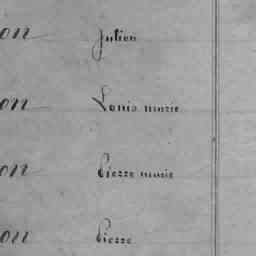 on Julien
on Louis marie
on Pierre marie
on Pierre